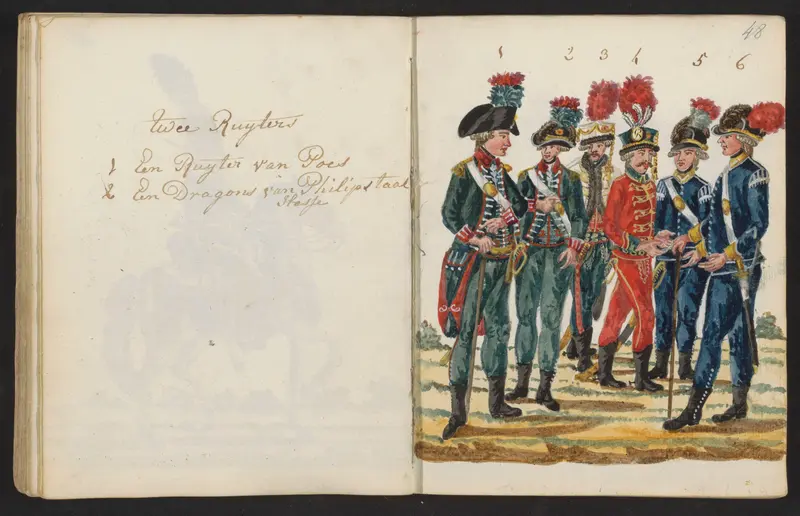 twee Ruyters
1 En Ruyter van Poes
2 En Dragons van Philipstaal
Hesse
48
1 2 3 4 5 6